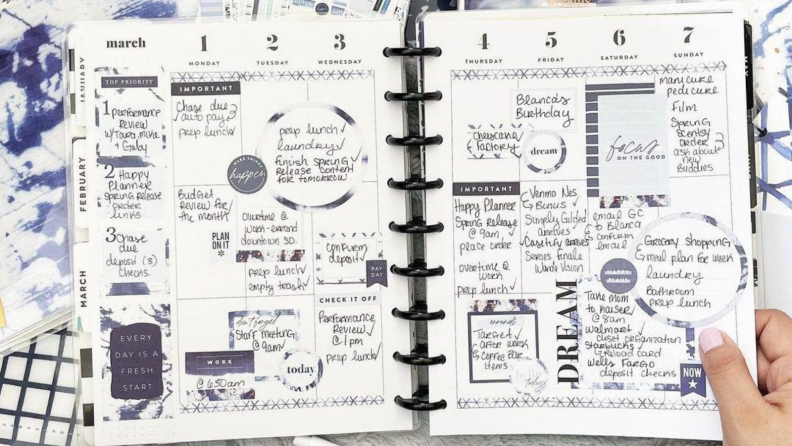 JANUARY
FEBRUARY
MARCH
march
TOP PRIORITY
1 performance
Review
+ Gaby
2 Happy
Planner
Spring Release
order
links
3 Chase
due
deposit (3)
checks.
EVERY
DAY IS A
FRESH
START
1
MONDAY
IMPORTANT
Chase due
auto pay
prep lunch
Budget
Review for
the month
PLAN
ON IT
*
WORK
@ 630am
2
TUESDAY
3
WEDNESDAY
prep lunch
laundry
finish spring
Release content
for tomorrow
MAKE THINGS
happen
overtime @
work - errand
downtown SD.
prep lunch
empty trash
don't forget
Staff meeting
@ 9am
today
confirm
deposit
PAY
DAY
CHECK IT OFF
Performance
Review
@ 1pm
prep lunch
4
THURSDAY
cheesecake
factory
IMPORTANT
Happy Planner
Spring Release
@ 9am
place order
overtime @
work
prep lunch
errands
TARGET
after work
Coffee Bar
items
hello
today
5
FRIDAY
Blanca's
Birthday
dream
Simply Gilded
arrives
Casetify arrives
Series finale
Wanda Vision
DREAM
6
SATURDAY
focus
ON THE GOOD
email GC
to Blanca
confirm
email
Take mom
to kaiser
@ 8am
Walmart
closet organization
Starbucks
reload card
Wells Fargo
deposit checks
7
SUNDAY
manicure
pedicure
Film
Spring
Scentsy
order
ask about
new
Buddies
Grocery Shopping
& meal plan for week
laundry
Bathroom
prep lunch
NOW
MAY